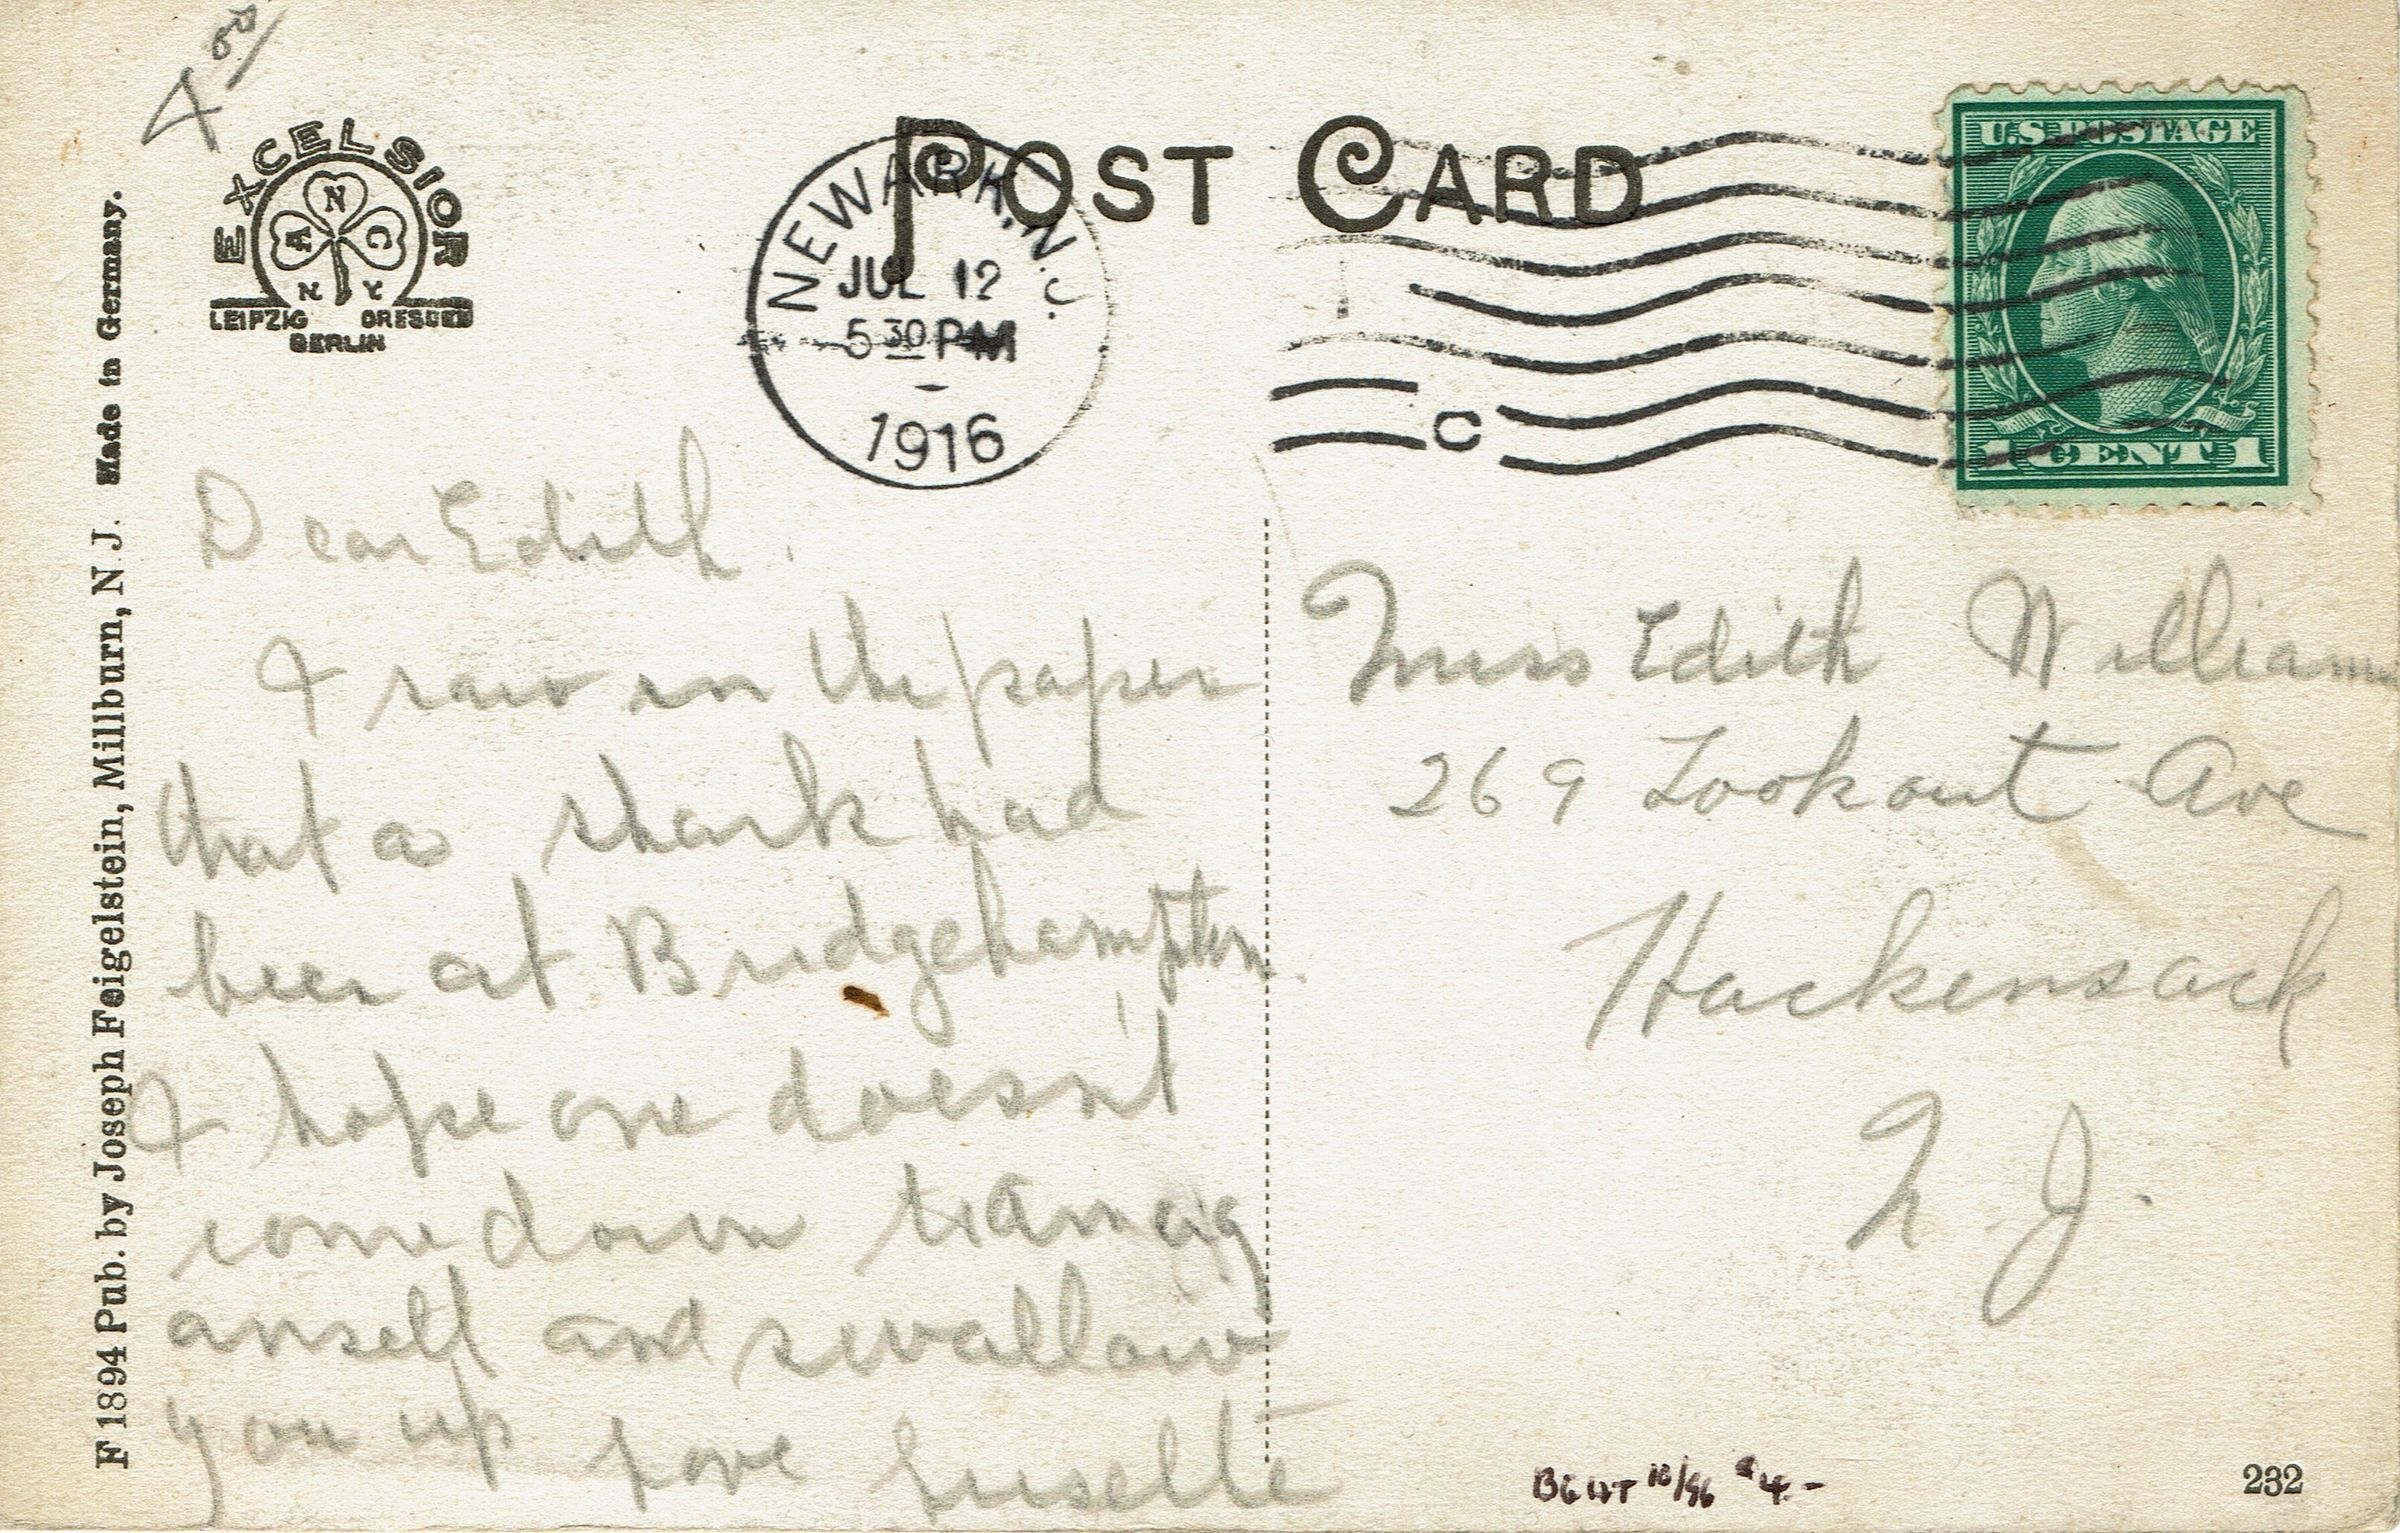 4 00/
EXCELSIOR
N
A C
N Y
LEIPZIG DRESDEN
BERLIN
POST CARD
NEWARK, N.J.
JUL 12
5 30 PM
1916
C
U.S. POSTAGE
1 CENT 1
F 1894 Pub. by Joseph Feigelstein, Millburn, N. J. Made in Germany.
Dear Edith.
I saw in the paper
that a shark had
been at Bridgehampton.
I hope one doesn't
come down
and swallow
you up Love Susette
Miss Edith Williams
269 Lookout Ave
Hackensack
N. J.
BGHT 10/96 $4.-
232